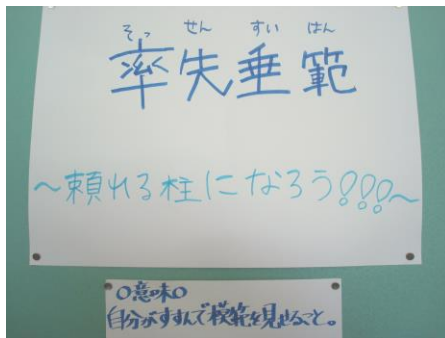 そっ せん すい はん
率先垂範
～頼れる柱になろう!!!～
○意味○
自分がすすんで模範を見せること。